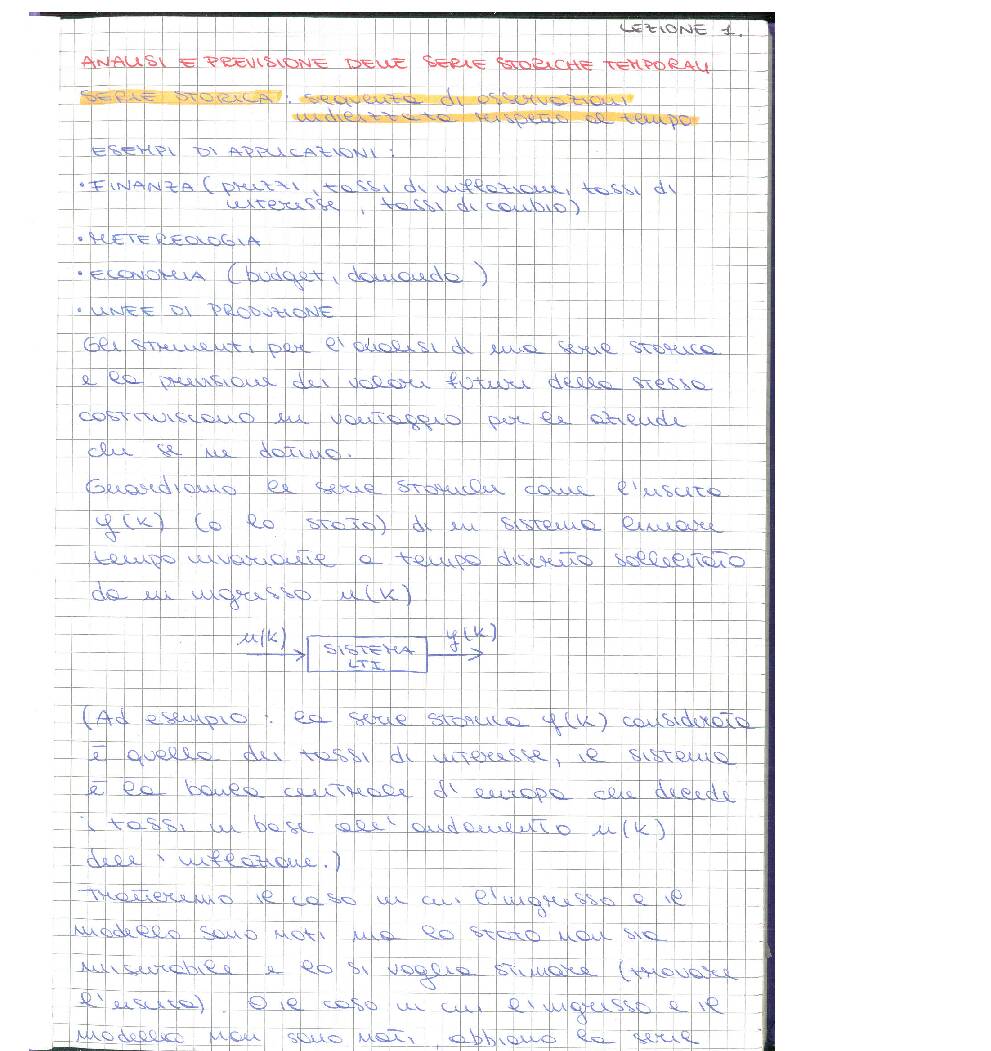 LEZIONE 1.
ANALISI E PREVISIONE DELLE SERIE STORICHE TEMPORALI
SERIE STORICA: sequenza di osservazioni
indicizzata rispetto al tempo
ESEMPI DI APPLICAZIONI:
• FINANZA (prezzi, tassi di inflazione, tassi di
interesse, tassi di cambio)
• METEREOLOGIA
• ECONOMIA (budget, domanda)
• LINEE DI PRODUZIONE
Gli strumenti per l'analisi di una serie storica
e la previsione dei valori futuri della stessa
costituiscono un vantaggio per le aziende
che se ne dotino.
Guardiamo le serie storiche come l'uscita
y(k) (o lo stato) di un sistema lineare
tempo invariante a tempo discreto sollecitato
da un ingresso u(k)
u(k) SISTEMA y(k)
LTI
(Ad esempio: la serie storica y(k) considerata
è quella dei tassi di interesse, il sistema
è la banca centrale d'europa che decede
i tassi in base all'andamento u(k)
dell'inflazione.)
Tratteremo il caso in cui l'ingresso e il
modello sono noti ma lo stato non sia
misurabile e lo si voglia stimare (trovare
l'uscita). O il caso in cui l'ingresso e il
modello non sono noti, abbiamo la serie